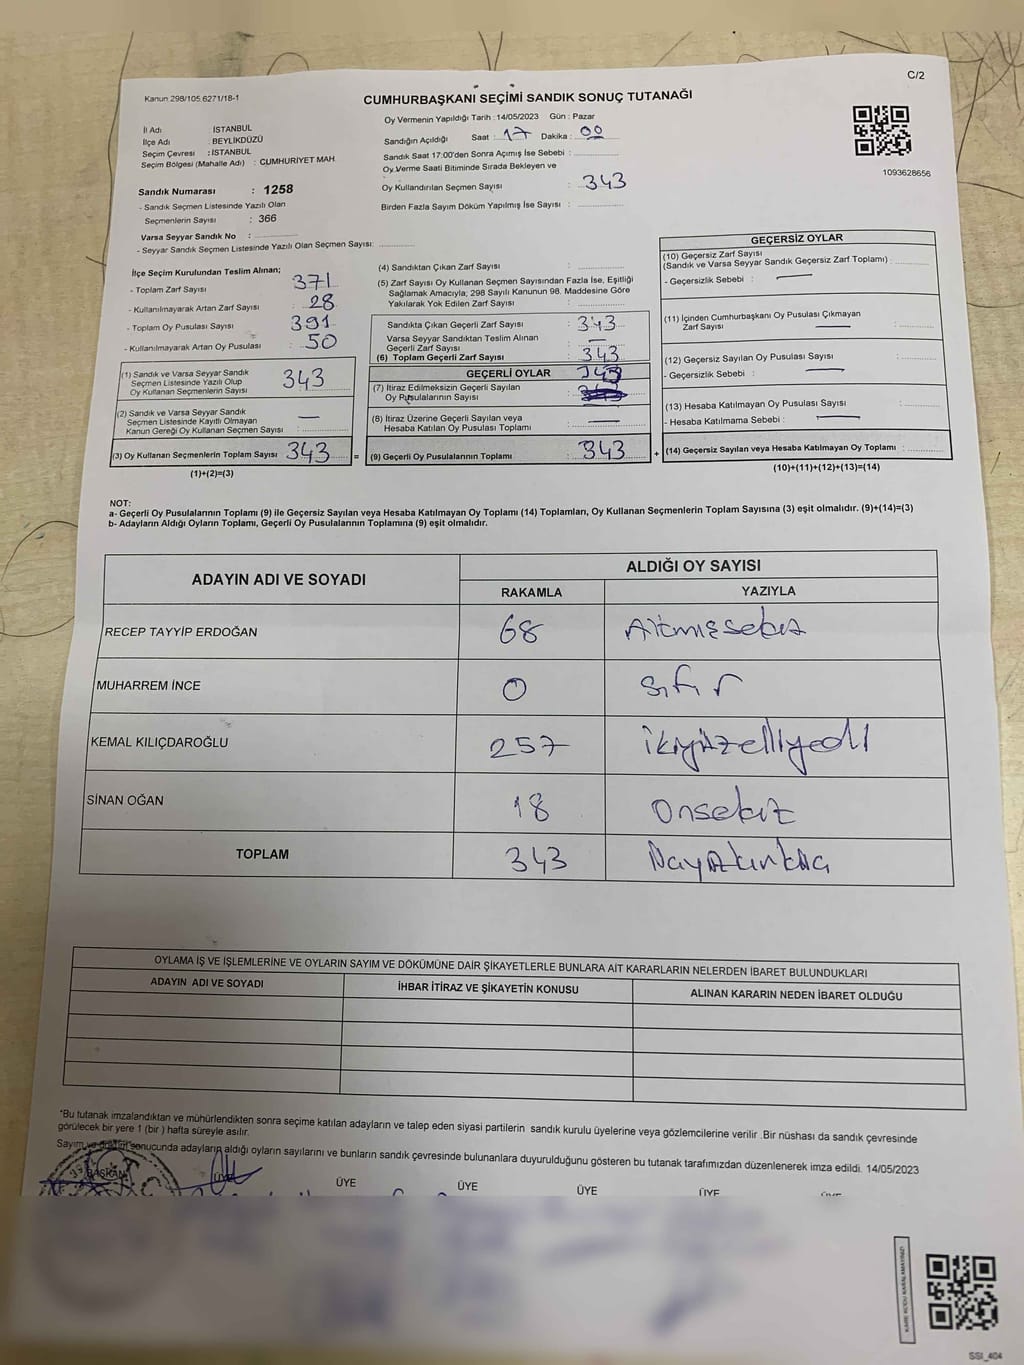 C/2
Kanun 298/105 6271/18-1
CUMHURBAŞKANI SEÇİMİ SANDIK SONUÇ TUTANAĞI
İl Adı : İSTANBUL
İlçe Adı : BEYLİKDÜZÜ
Seçim Çevresi : İSTANBUL
Seçim Bölgesi (Mahalle Adı) : CUMHURİYET MAH.
Sandık Numarası : 1258
- Sandık Seçmen Listesinde Yazılı Olan
Seçmenlerin Sayısı : 366
Varsa Seyyar Sandık No :
- Seyyar Sandık Seçmen Listesinde Yazılı Olan Seçmen Sayısı:
Oy Vermenin Yapıldığı Tarih : 14/05/2023 Gün : Pazar
Sandığın Açıldığı Saat : 17 Dakika : 00
Sandık Saat 17:00'den Sonra Açımış İse Sebebi :
Oy Verme Saati Bitiminde Sırada Bekleyen ve
Oy Kullandırılan Seçmen Sayısı : 343
Birden Fazla Sayım Döküm Yapılmış İse Sayısı :
1093628656
İlçe Seçim Kurulundan Teslim Alınan;
- Toplam Zarf Sayısı : 371
- Kullanılmayarak Artan Zarf Sayısı : 28
- Toplam Oy Pusulası Sayısı : 391
- Kullanılmayarak Artan Oy Pusulası : 50
(1) Sandık ve Varsa Seyyar Sandık
Seçmen Listesinde Yazılı Olup
Oy Kullanan Seçmenlerin Sayısı : 343
(2) Sandık ve Varsa Seyyar Sandık
Seçmen Listesinde Kayıtlı Olmayan
Kanun Gereği Oy Kullanan Seçmen Sayısı : —
(3) Oy Kullanan Seçmenlerin Toplam Sayısı : 343 =
(1)+(2)=(3)
(4) Sandıktan Çıkan Zarf Sayısı :
(5) Zarf Sayısı Oy Kullanan Seçmen Sayısından Fazla İse, Eşitliği
Sağlamak Amacıyla; 298 Sayılı Kanunun 98. Maddesine Göre
Yakılarak Yok Edilen Zarf Sayısı :
Sandıkta Çıkan Geçerli Zarf Sayısı : 343
Varsa Seyyar Sandıktan Teslim Alınan
Geçerli Zarf Sayısı : —
(6) Toplam Geçerli Zarf Sayısı : 343
GEÇERLİ OYLAR 343
(7) İtiraz Edilmeksizin Geçerli Sayılan
Oy Pusulalarının Sayısı :
(8) İtiraz Üzerine Geçerli Sayılan veya
Hesaba Katılan Oy Pusulası Toplamı : —
(9) Geçerli Oy Pusulalarının Toplamı : 343 +
GEÇERSİZ OYLAR
(10) Geçersiz Zarf Sayısı
(Sandık ve Varsa Seyyar Sandık Geçersiz Zarf Toplamı) :
- Geçersizlik Sebebi : —
(11) İçinden Cumhurbaşkanı Oy Pusulası Çıkmayan
Zarf Sayısı — :
(12) Geçersiz Sayılan Oy Pusulası Sayısı :
- Geçersizlik Sebebi : —
(13) Hesaba Katılmayan Oy Pusulası Sayısı :
- Hesaba Katılmama Sebebi : —
(14) Geçersiz Sayılan veya Hesaba Katılmayan Oy Toplamı :
(10)+(11)+(12)+(13)=(14)
NOT:
a- Geçerli Oy Pusulalarının Toplamı (9) ile Geçersiz Sayılan veya Hesaba Katılmayan Oy Toplamı (14) Toplamları, Oy Kullanan Seçmenlerin Toplam Sayısına (3) eşit olmalıdır. (9)+(14)=(3)
b- Adayların Aldığı Oyların Toplamı, Geçerli Oy Pusulalarının Toplamına (9) eşit olmalıdır.
ADAYIN ADI VE SOYADI ALDIĞI OY SAYISI
RAKAMLA YAZIYLA
RECEP TAYYİP ERDOĞAN 68 Altmışsekiz
MUHARREM İNCE 0 sıfır
KEMAL KILIÇDAROĞLU 257 ikiyüzelliyedi
SİNAN OĞAN 18 Onsekiz
TOPLAM 343
OYLAMA İŞ VE İŞLEMLERİNE VE OYLARIN SAYIM VE DÖKÜMÜNE DAİR ŞİKAYETLERLE BUNLARA AİT KARARLARIN NELERDEN İBARET BULUNDUKLARI
ADAYIN ADI VE SOYADI İHBAR İTİRAZ VE ŞİKAYETİN KONUSU ALINAN KARARIN NEDEN İBARET OLDUĞU
*Bu tutanak imzalandıktan ve mühürlendikten sonra seçime katılan adayların ve talep eden siyasi partilerin sandık kurulu üyelerine veya gözlemcilerine verilir .Bir nüshası da sandık çevresinde
görülecek bir yere 1 (bir ) hafta süreyle asılır.
Sayım ve döküm sonucunda adayların aldığı oyların sayılarını ve bunların sandık çevresinde bulunanlara duyurulduğunu gösteren bu tutanak tarafımızdan düzenlenerek imza edildi. 14/05/2023
BAŞKAN ÜYE ÜYE ÜYE ÜYE ÜYE
KARE KODU KARALAMAYINIZ!
SSI_404